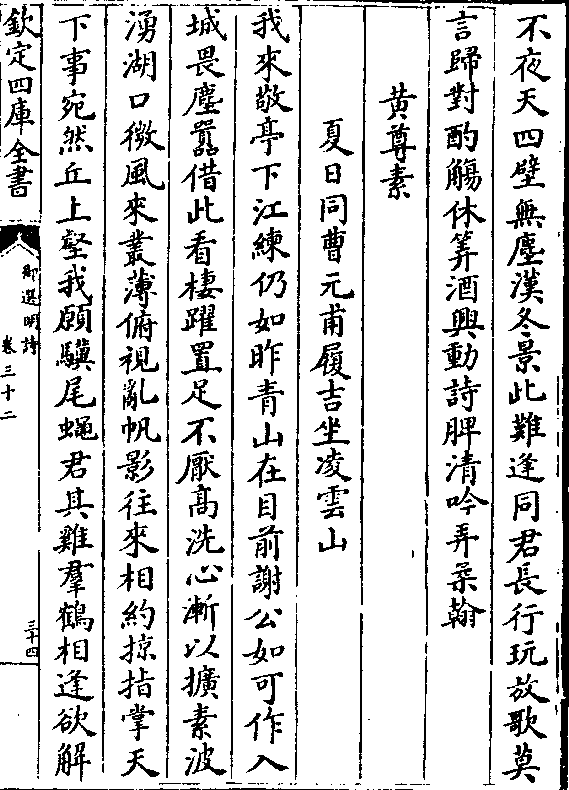 不夜天四壁無塵漢冬景此難逢同君長行玩放歌莫
言歸對酌觴休筭酒興動詩脾清吟弄柔翰
黄尊素
夏日同曹元甫履吉坐凌雲山
我來敬亭下江練仍如昨青山在目前謝公如可作入
城畏塵囂借此看棲躍置足不厭高洗心漸以擴素波
湧湖口微風來叢薄俯視亂帆影往來相約掠指掌天
下事宛然丘上壑我願驥尾蠅君其雞羣鶴相逢欲解
欽定四庫全書
御選明詩
卷三十二
三十四